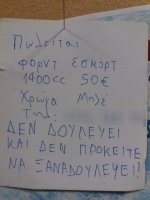 Πωλείται
φορντ Εσκορτ
1400cc 50€
Χρώμα Μπλέ
Τηλ:
ΔΕΝ ΔΟΥΛΕΥΕΙ
ΚΑΙ ΔΕΝ ΠΡΟΚΕΙΤΕ
ΝΑ ΞΑΝΑΔΟΥΛΕΨΕΙ!!